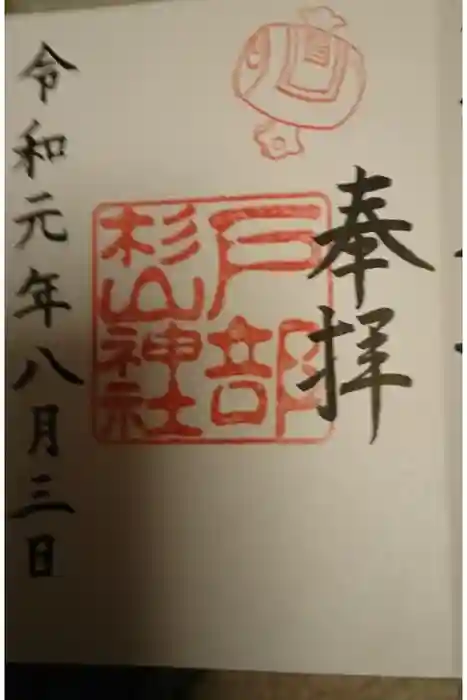 奉拝
戸部
杉山神社
令和元年八月三日